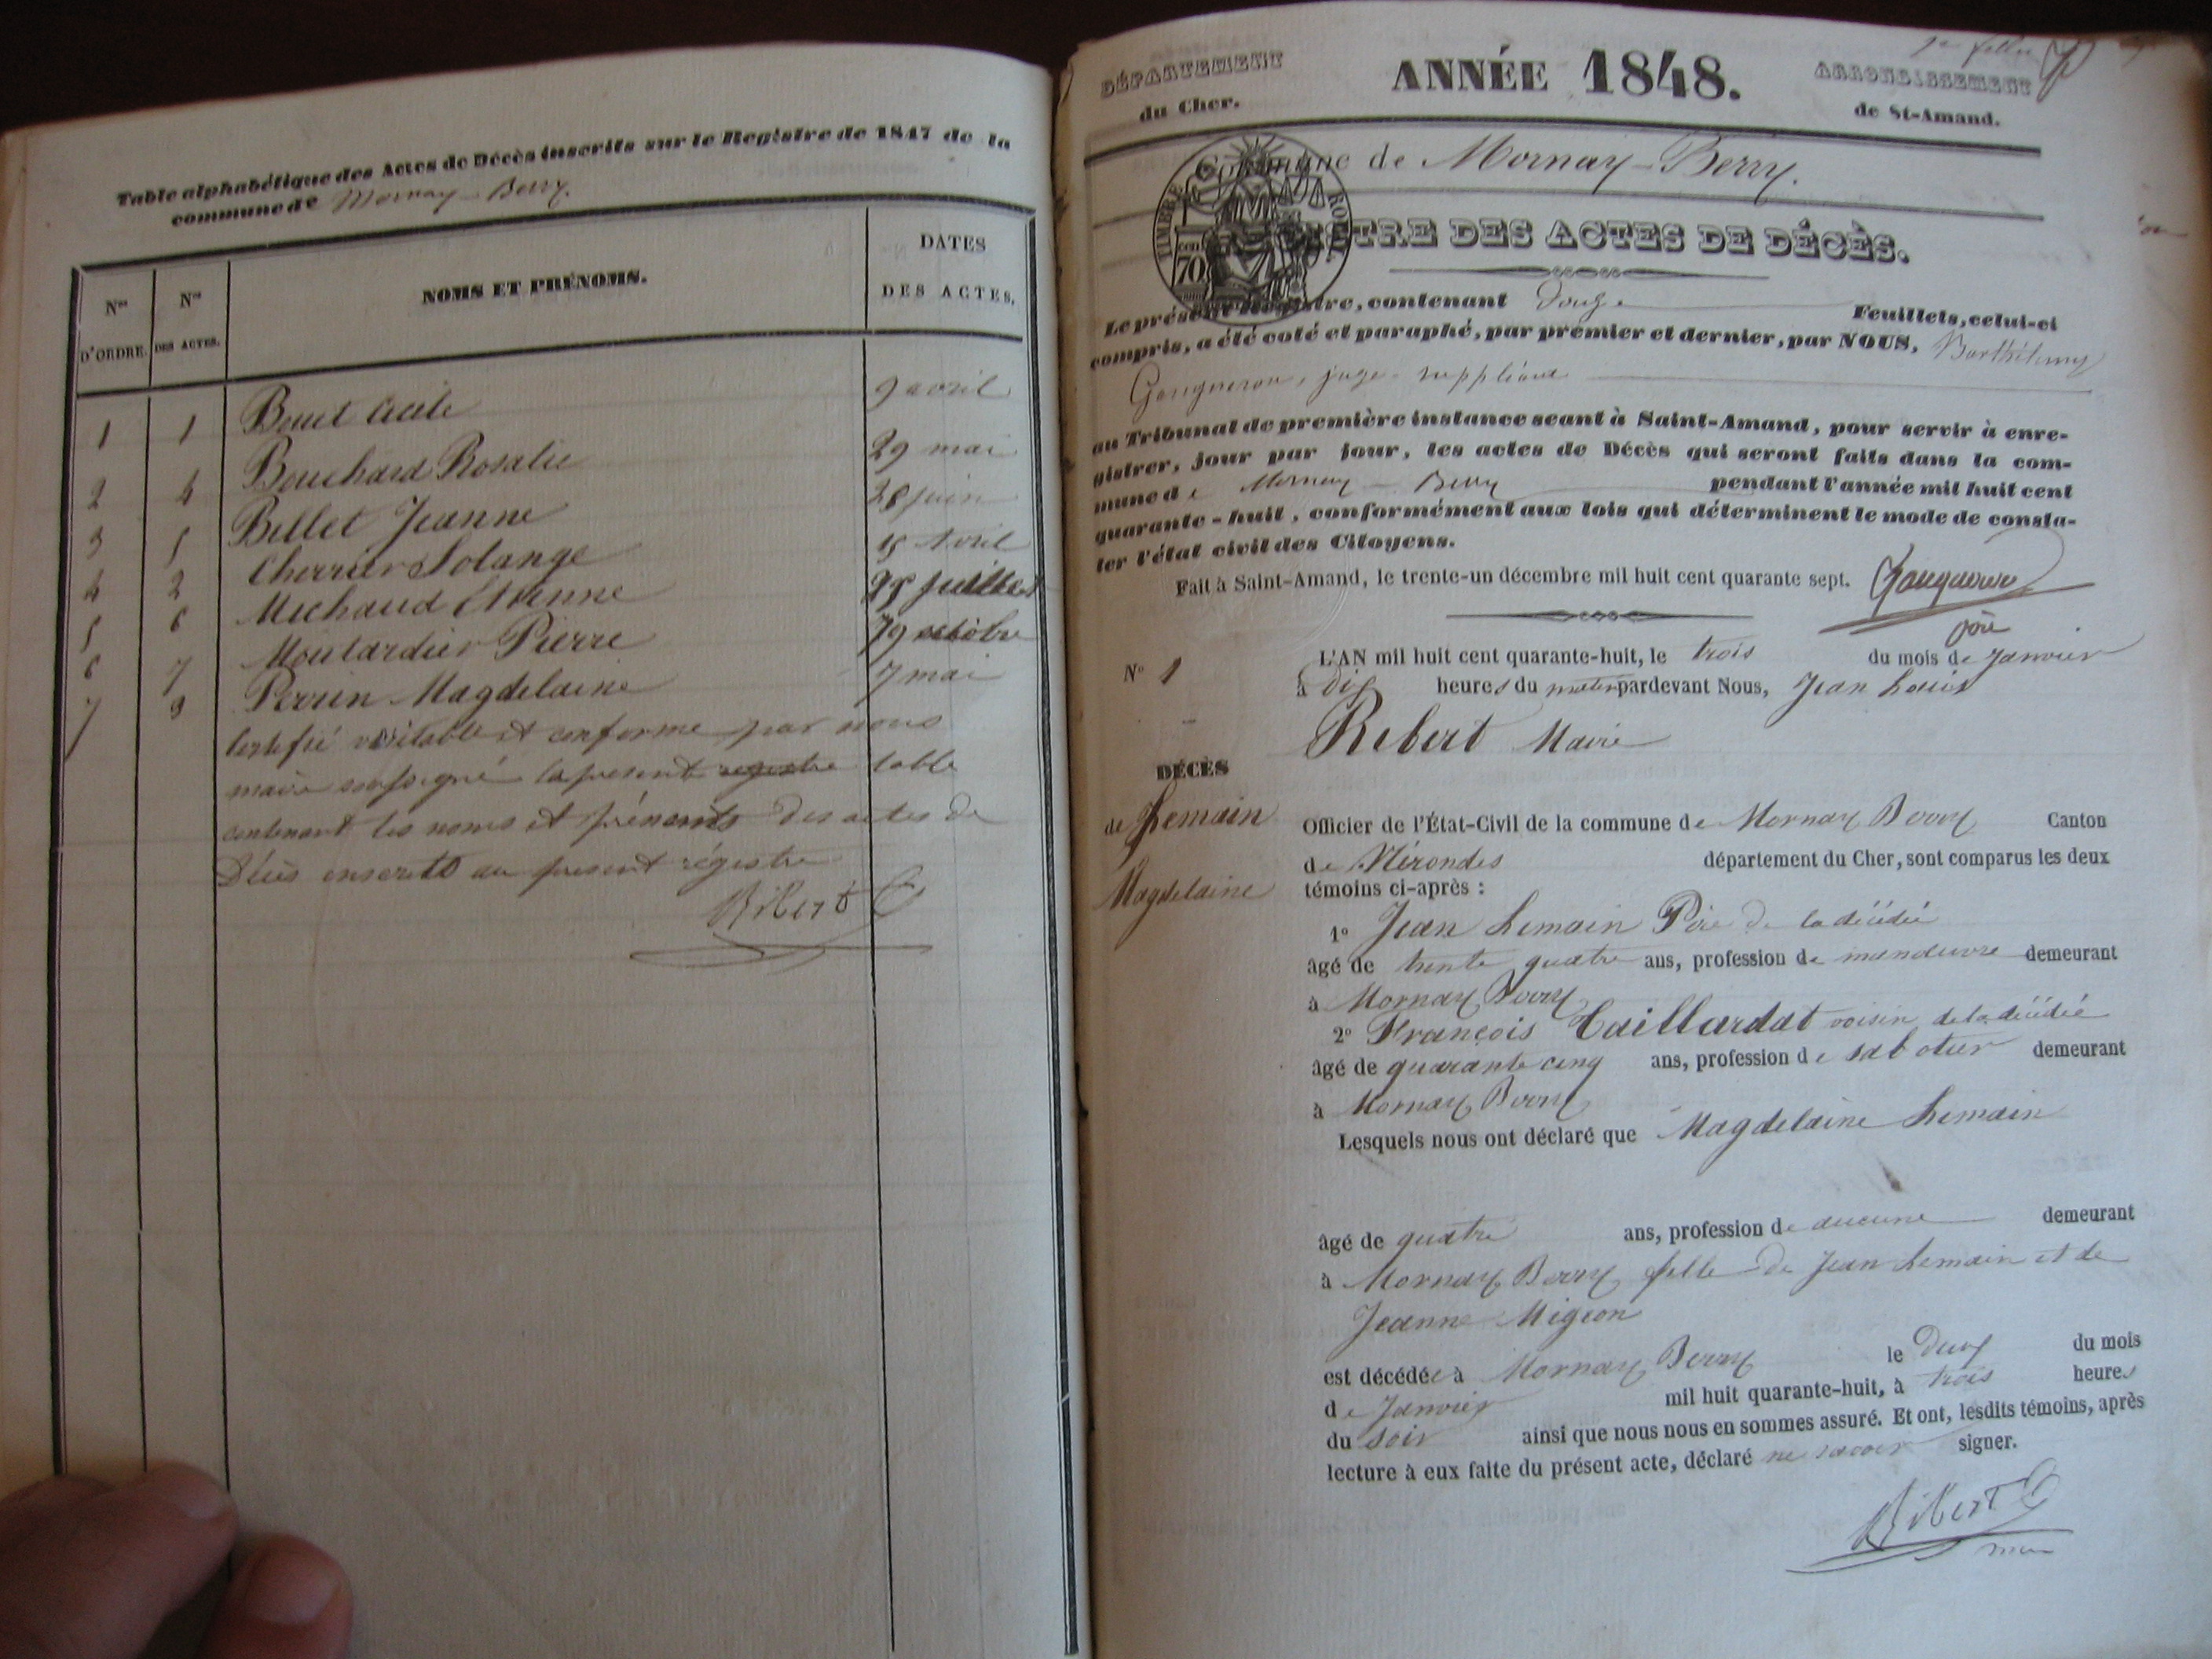 Table alphabétique des Actes de Décès inscrits sur le Registre de 1847 de la
commune de Mornay-Berry.
Nos D'ORDRE. Nos DES ACTES. NOMS ET PRÉNOMS. DATES DES ACTES.
1 1 9 avril
2 4 Bouchard Rosalie 29 mai
3 5 Billet Jeanne 28 juin
4 2 Cherrier Solange 15 Avril
5 6 Michaud Etienne 25 juillet
6 7 Moutardier Pierre octobre
7 3 Perrin Magdelaine 7 mai
Certifié véritable et conforme par nous
maire soussigné la présent registre table
contenant les noms et prénoms des actes de
Décès inscrits au présent régistre
Ribert
DÉPARTEMENT
du Cher.
ANNÉE 1848.
ARRONDISSEMENT
de St-Amand.
Commune de Mornay-Berry.
TIMBRE ROYAL
70
REGISTRE DES ACTES DE DÉCÈS.
Le présent Registre, contenant Douze Feuillets, celui-ci
compris, a été coté et paraphé, par premier et dernier, par NOUS, Barthélemy
juge-suppléant
au Tribunal de première instance seant à Saint-Amand, pour servir à enre-
gistrer, jour par jour, les actes de Décès qui seront faits dans la com-
mune de Mornay-Berry pendant l'année mil huit cent
quarante-huit, conformément aux lois qui déterminent le mode de consta-
ter l'état civil des Citoyens.
Fait à Saint-Amand, le trente-un décembre mil huit cent quarante sept.
No 1
L'AN mil huit cent quarante-huit, le trois du mois de Janvier
à dix heures du matin pardevant Nous, Jean Louis
Ribert Maire
DÉCÈS
de Lemain
Magdelaine
Officier de l'État-Civil de la commune de Mornay Berry Canton
de Nérondes département du Cher, sont comparus les deux
témoins ci-après :
1o Jean Lemain Père de la décédée
âgé de trente quatre ans, profession de manœuvre demeurant
à Mornay Berry
2o François Taillardat voisin de la décédée
âgé de quarante cinq ans, profession de sabotier demeurant
à Mornay Berry
Lesquels nous ont déclaré que Magdelaine Lemain
âgé de quatre ans, profession de aucune demeurant
à Mornay Berry fille de Jean Lemain et de
Jeanne Migeon
est décédée à Mornay Berry le deux du mois
de Janvier mil huit quarante-huit, à trois heures
du soir ainsi que nous nous en sommes assuré. Et ont, lesdits témoins, après
lecture à eux faite du présent acte, déclaré ne savoir signer.
Ribert